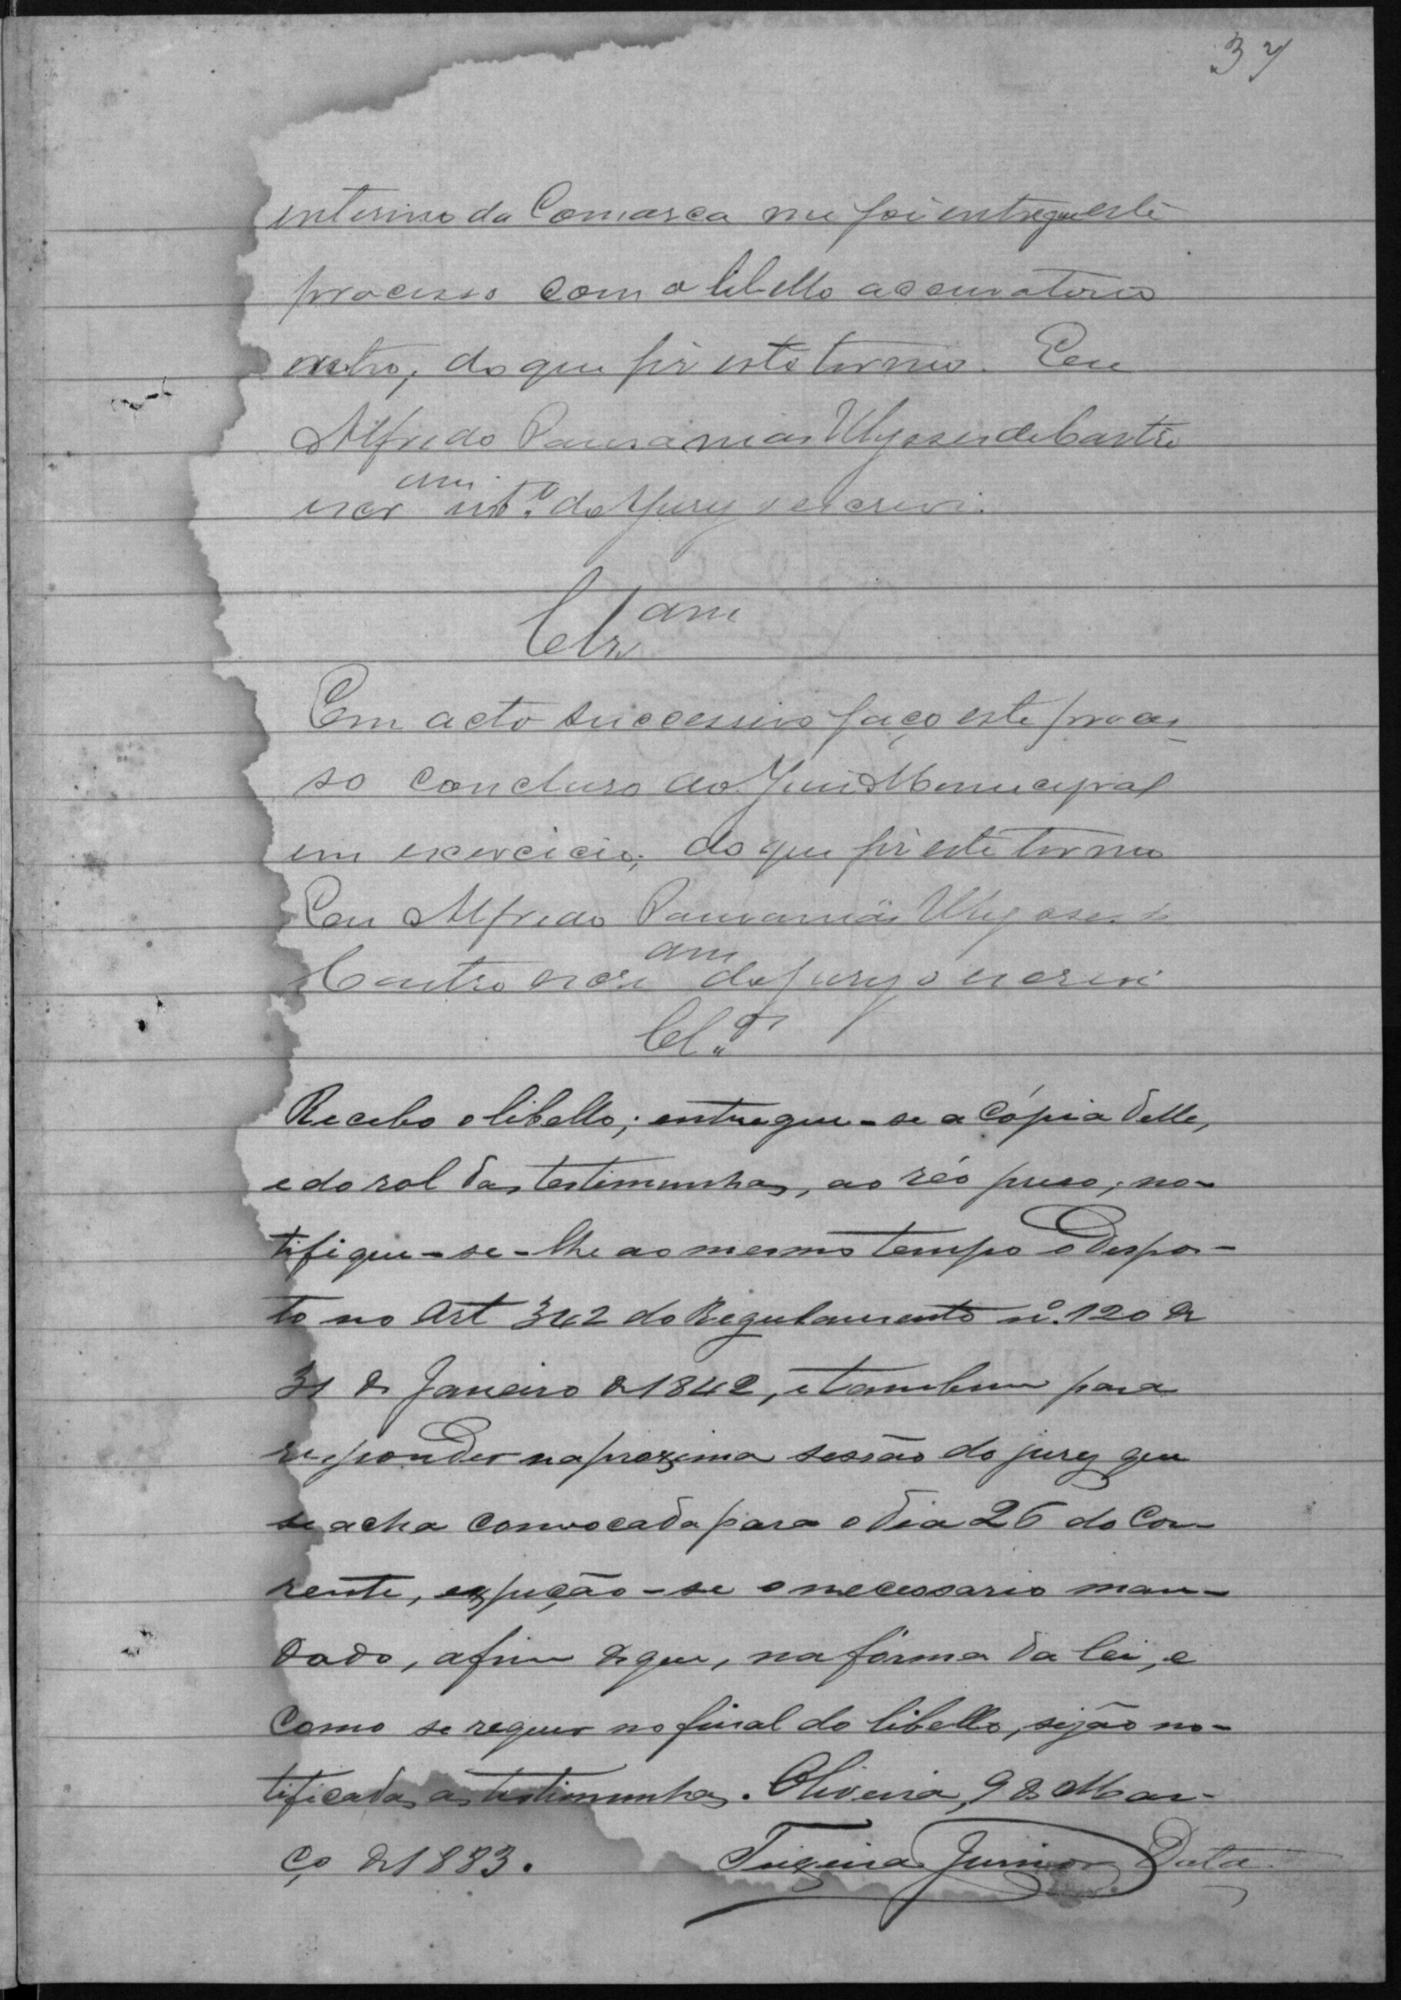 37
interino da Comarca me foi entregue este
processo com o libello accusatorio
retro, do que fiz este termo. Eu
Alfredo Pausanias Ulysses de Castro
escr am int.º do Jury o escrevi.
Clz. am
Em acto successivo faço este proces
so concluso ao Juiz Municipal
em exercicio; do que fiz este termo
Eu Alfredo Pausanias Ulysses de
Castro escr am do jury o escrevi
Cl.º
Recebo o libello; entregue-se a cópia delle,
e do rol das testimunhas, ao réo preso; no-
tifique-se-lhe ao mesmo tempo o dispos-
to no Art 342 do Regulamento nº. 120 de
31 de Janeiro de 1842, e tambem para
responder na proxima sessão do jury que
se acha convocada para o dia 26 do Cor-
rente, expeção-se o necessario man-
dado, afim de que, na fórma da lei, e
como se requer no final do libello, sejão no-
tificadas as testimunhas. Oliveira, 9 de Mar-
ço de 1883. Teixeira Junior Data